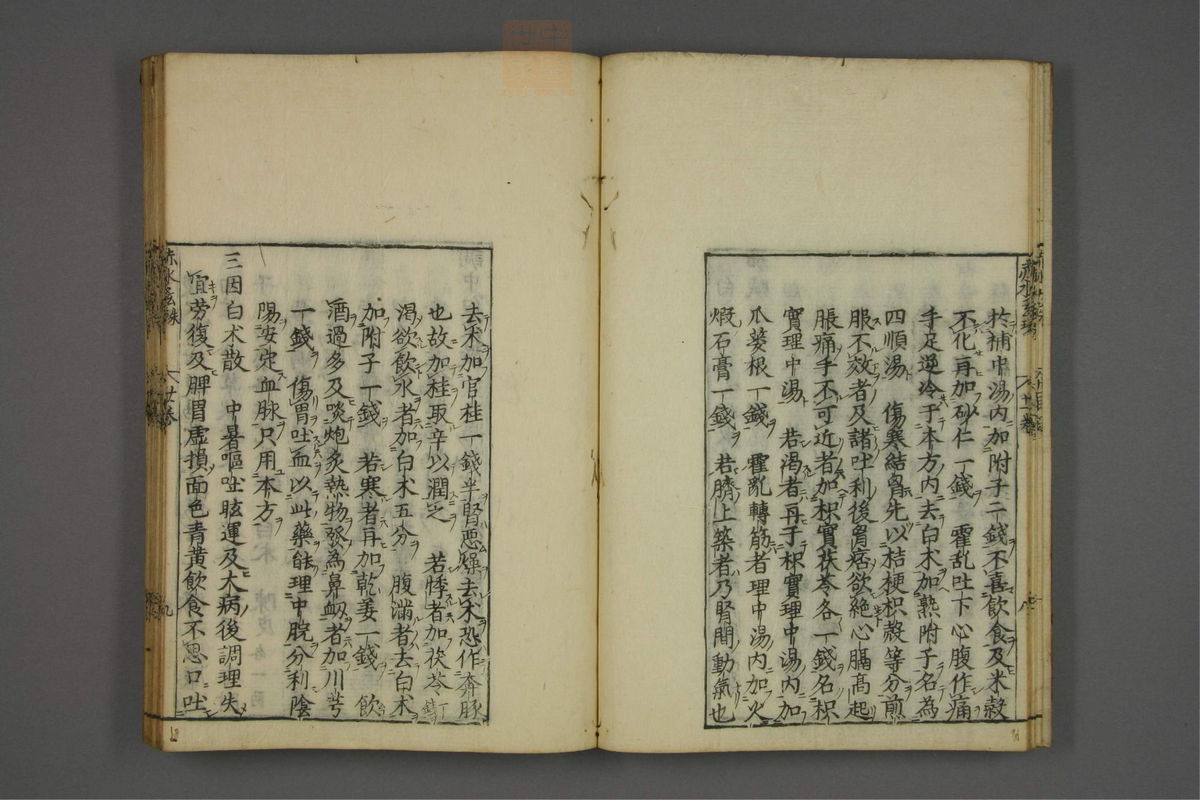 於補中湯内加附子二錢不喜飲食及米穀
不化再加砂仁一錢　霍乱吐下心腹作痛
手足逆冷于本方内去白术加熟附子名為
四順湯　傷寒結胷先以桔梗枳殻等分煎
服不效者及諸吐利後胷痞欲絶心膈高起
脹痛手不可近者加枳實茯苓各一錢名枳
實理中湯　若渇者再于枳實理中湯内加
爪蔞根一錢　霍亂轉筋者理中湯内加火
煅石膏一錢　若臍上築者乃腎間動氣也
去术加官桂一錢半腎悪燥去术恐作奔豚
也故加桂取辛以潤之　若悸者加茯苓一錢
渇欲飲水者加白术五分　腹滿者去白术
加附子一錢　若寒者再加乾姜一錢　飲
酒過多及啖炮炙熱物發為鼻衂者加川芎
一錢　傷胃吐血以此藥能理中脘分利陰
陽安定血脉只用本方
三因白术散　中暑嘔吐眩運及大病後調理失
宜劳復及脾胃虚損面色青黄飲食不思口吐
赤水玄珠　廿卷　九